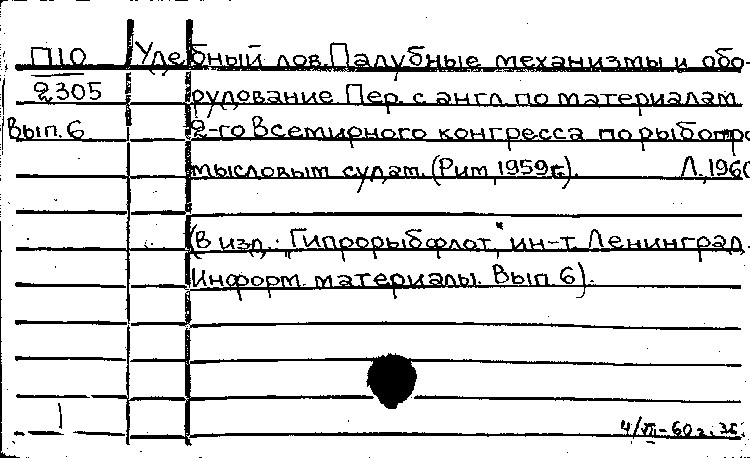 П10 Удебный лов. Палубные механизмы и обо-
2305 рудование. Пер. с англ. по материалам
Вып. 6 2-го Всемирного конгресса по рыбопро
мысловым судам. (Рим, 1959г.). Л., 1960
(В изд.: "Гипрорыбфлот", ин-т. Ленинград.
Информ. материалы. Вып. 6).